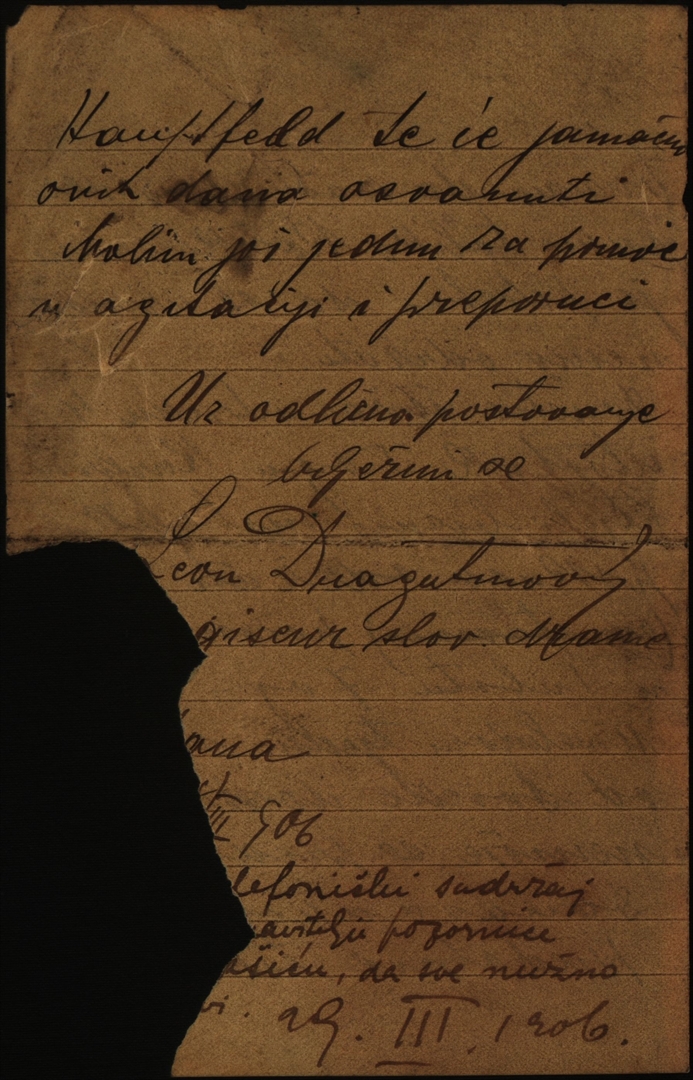 Hauptfeld te će jamačno
ovih dana osvanuti
Molim još jedan za pomoć
u agitaciji i preporuci
Uz odlično poštovanje
bilježim se
Leon Dragutinović
giseur slov. drame
ana
III 906
lefonički sadržaj
avitelju pozornice
ašiću, da sve nužno
vi. 29. III. 1906.